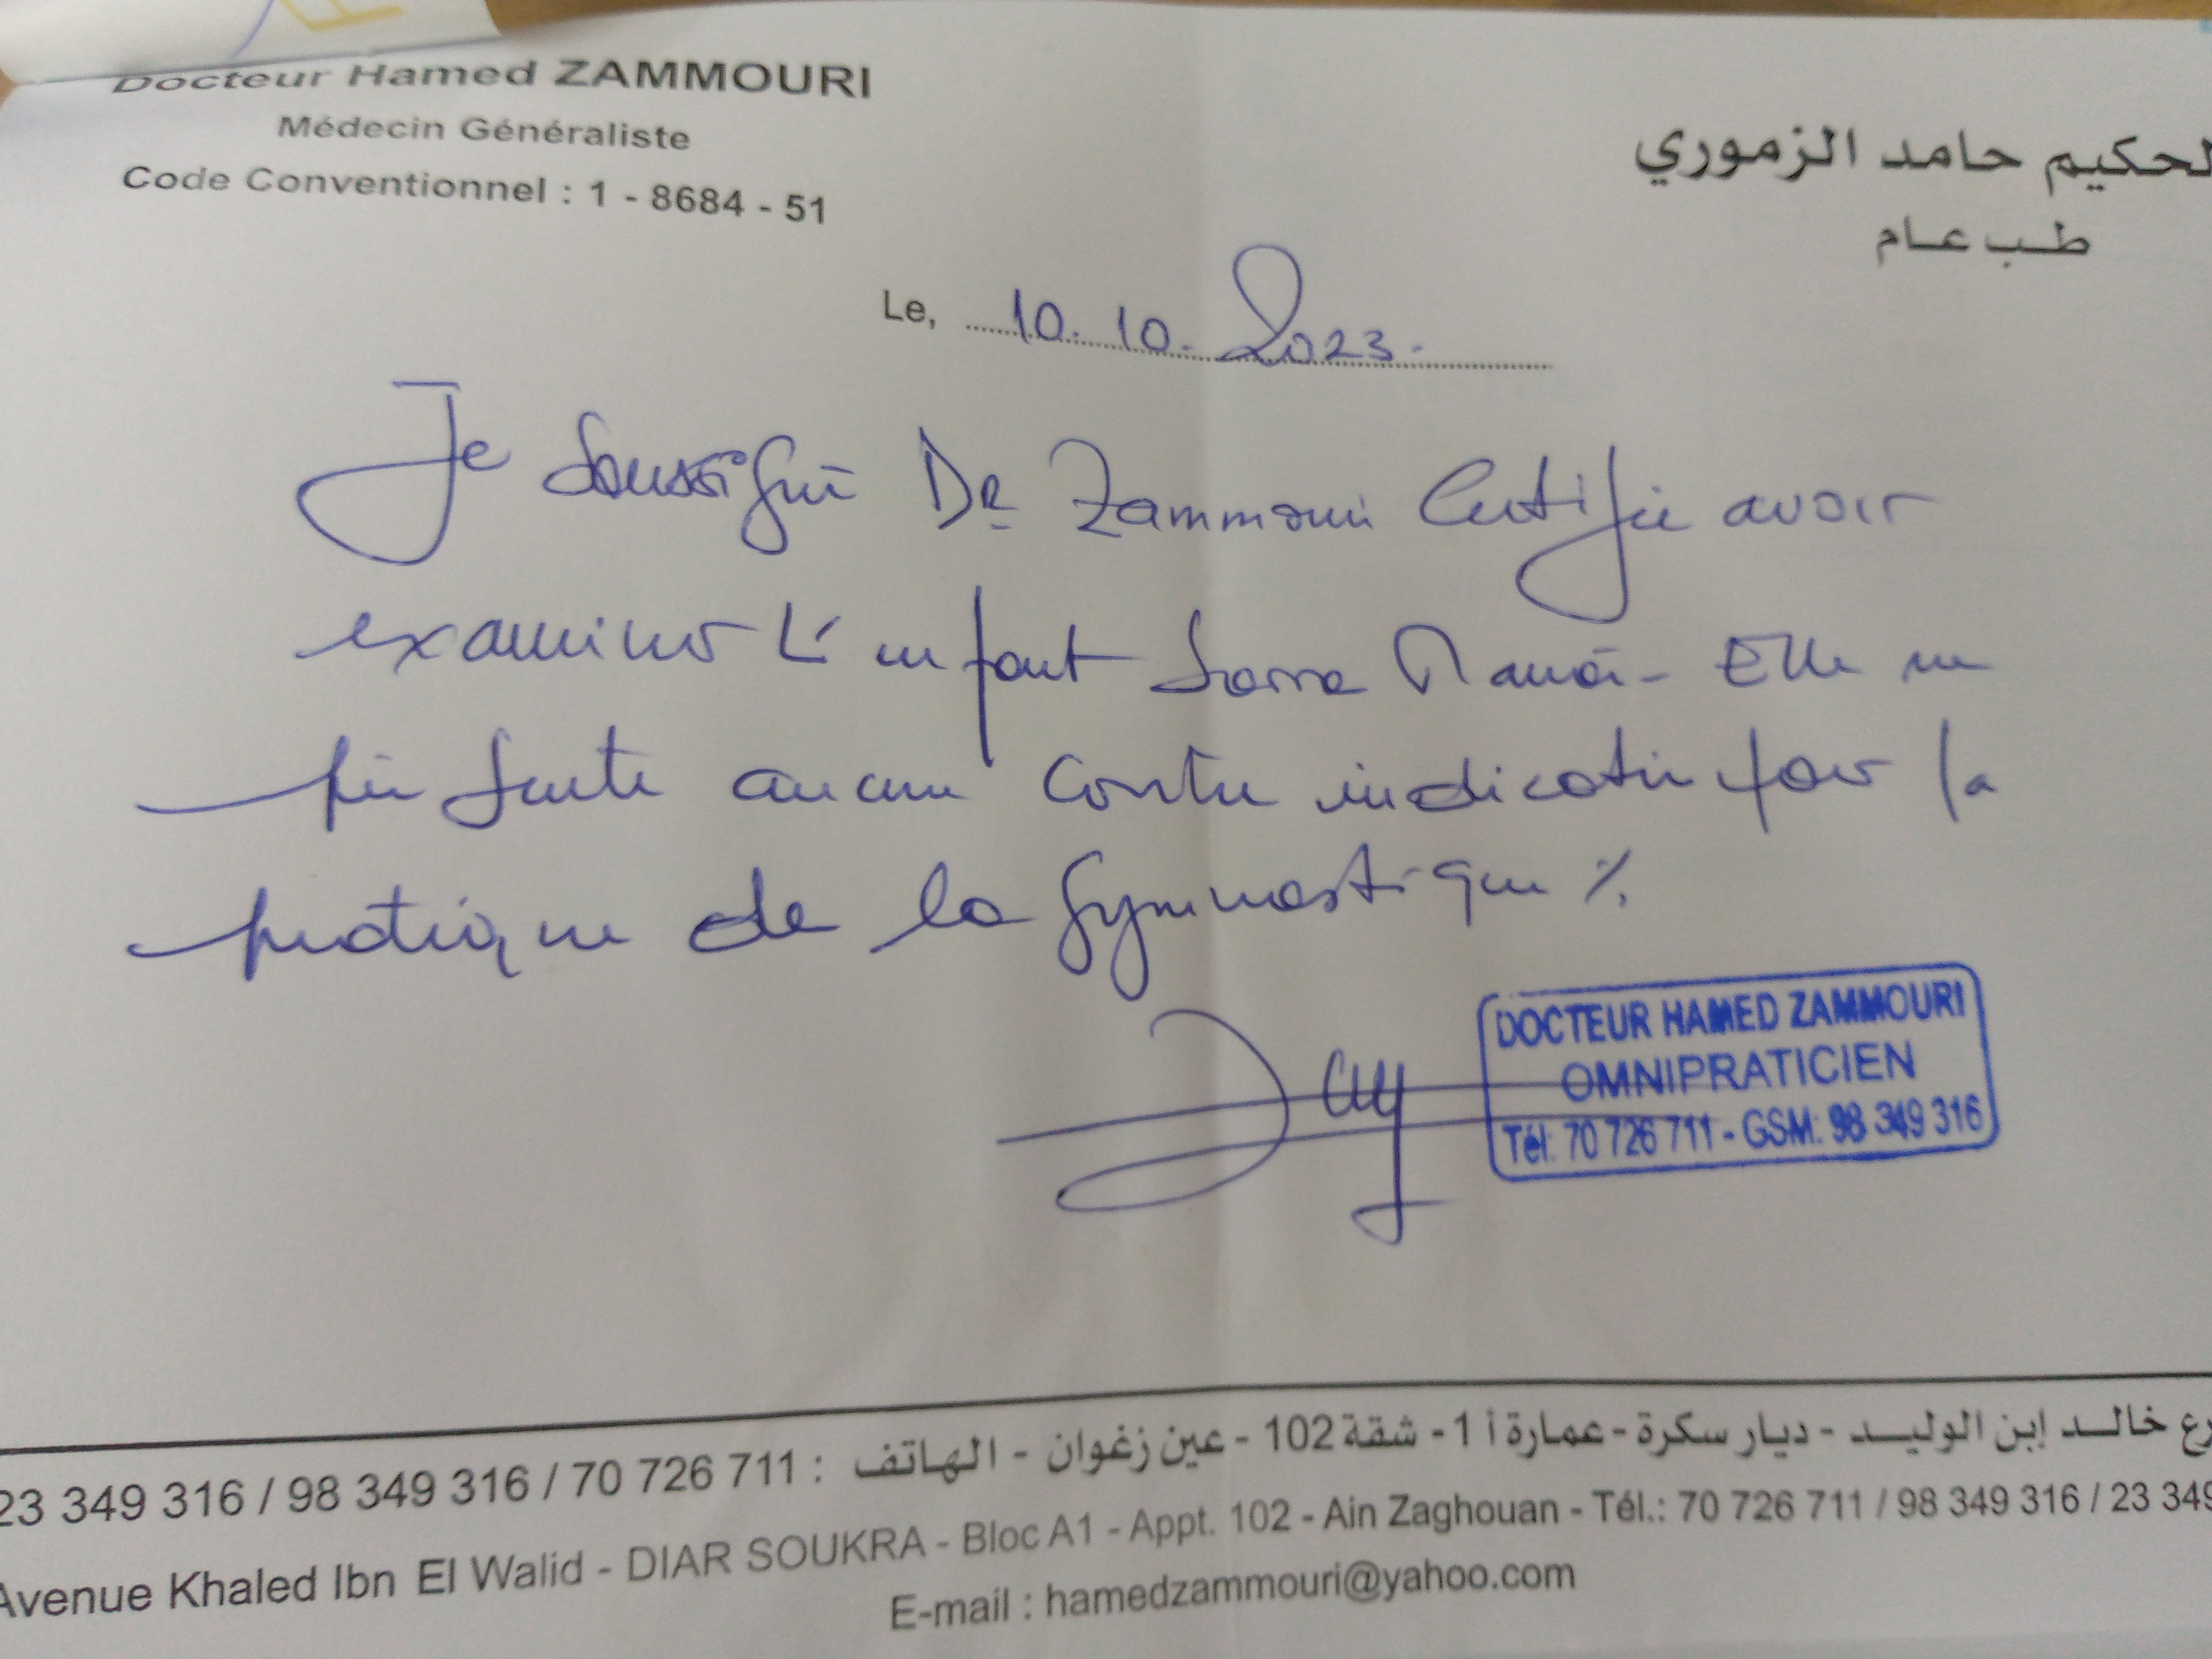 Docteur Hamed ZAMMOURI
Médecin Généraliste
Code Conventionnel : 1 - 8684 - 51
لحكيم حامد الزموري
طب عام
Le, 10. 10. 2023.
Je soussigné Dr Zammouri Certifie avoir
examiner L'enfant Sarra Elle ne
présente aucune contre indication pour la
pratique de la gymnastique ./.
DOCTEUR HAMED ZAMMOURI
OMNIPRATICIEN
Tél: 70 726 711 - GSM: 98 349 316
رع خالد إبن الوليد - ديار سكرة - عمارة أ 1 - شقة 102 - عين زغوان - الهاتف : 23 349 316 / 98 349 316 / 70 726 711
Avenue Khaled Ibn El Walid - DIAR SOUKRA - Bloc A1 - Appt. 102 - Ain Zaghouan - Tél.: 70 726 711 / 98 349 316 / 23 349
E-mail : hamedzammouri@yahoo.com